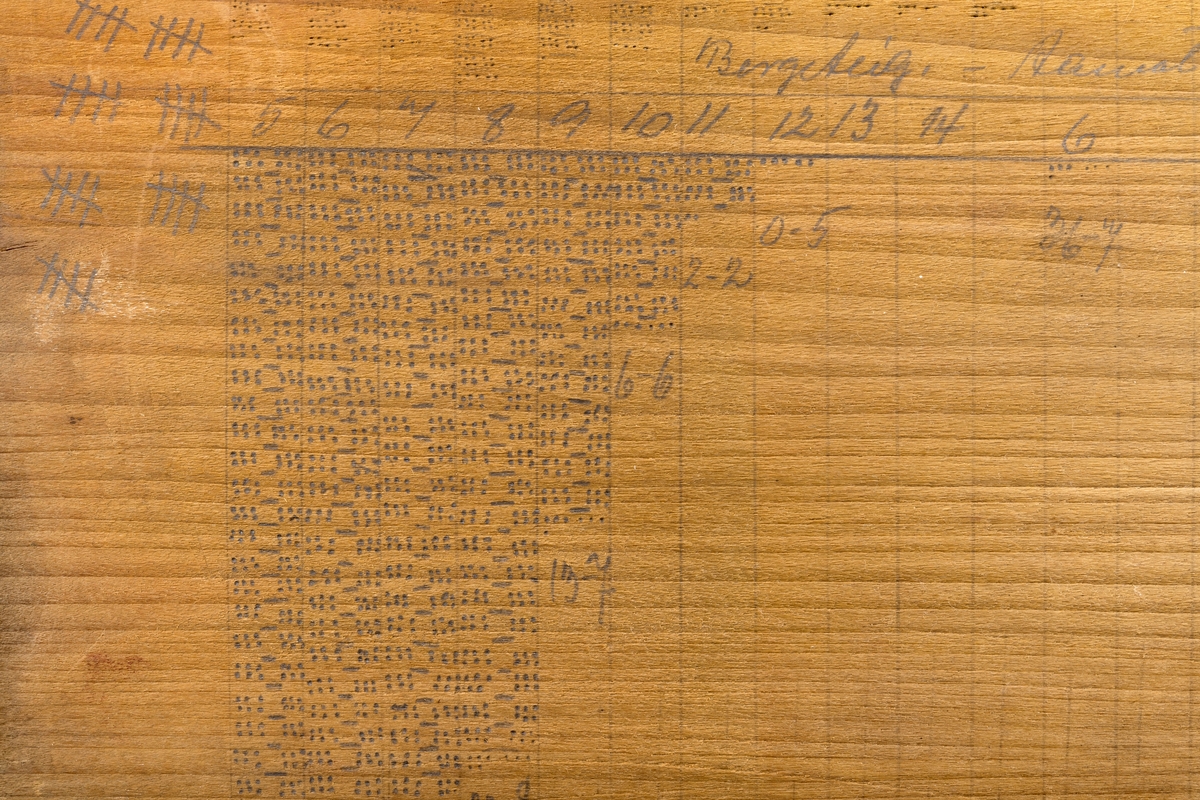 5 6 7 8 9 10 11 12 13 14 6
0-5 26-7
2-2
6-6
13-7